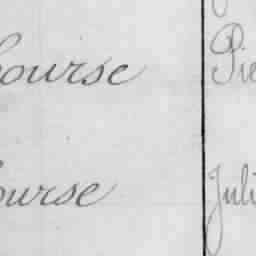 ourse Pie
ourse Juli